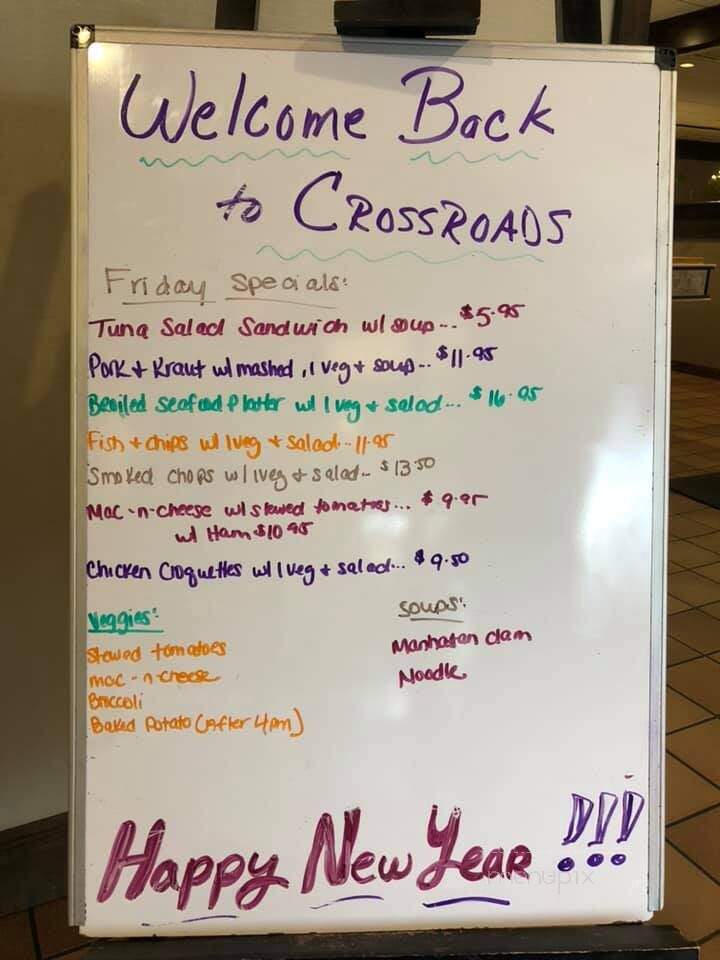 Welcome Back
to CROSSROADS
Friday Specials:
Tuna Salad Sandwich w/ soup... $5.95
Pork + Kraut w/ mashed, 1 veg + soup... $11.95
Broiled seafood Platter w/ 1 veg + salad... $16.95
Fish + chips w/ 1 veg + salad... 11.95
Smoked Chops w/ 1 veg + salad... $13.50
Mac-n-cheese w/ stewed tomatoes... $9.95
w/ Ham $10.95
Chicken Croquettes w/ 1 veg + salad... $9.50
Veggies:
Stewed tomatoes
mac-n-cheese
Broccoli
Baked Potato (After 4pm)
Soups:
Manhatan clam
Noodle
Happy New Year !!!
menupix